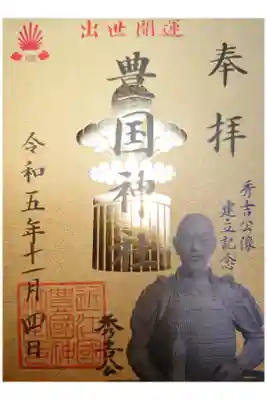 出世開運
奉拝
秀吉公像
建立記念
豊国神社
秀吉公
令和五年十一月四日
近江國
豊國神